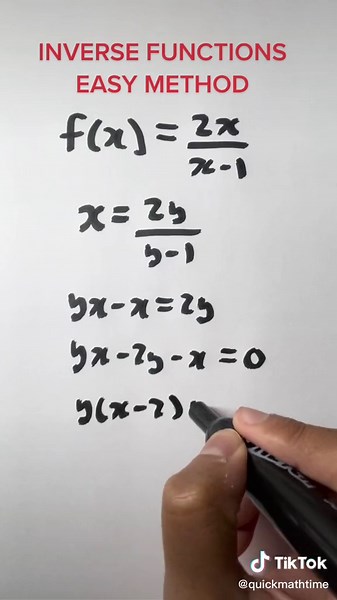 INVERSE FUNCTIONS
EASY METHOD
f(x) = 2x/x-1
x = 2y/y-1
yx-x=2y
yx-2y-x=0
y(x-2)
TikTok
@quickmathtime